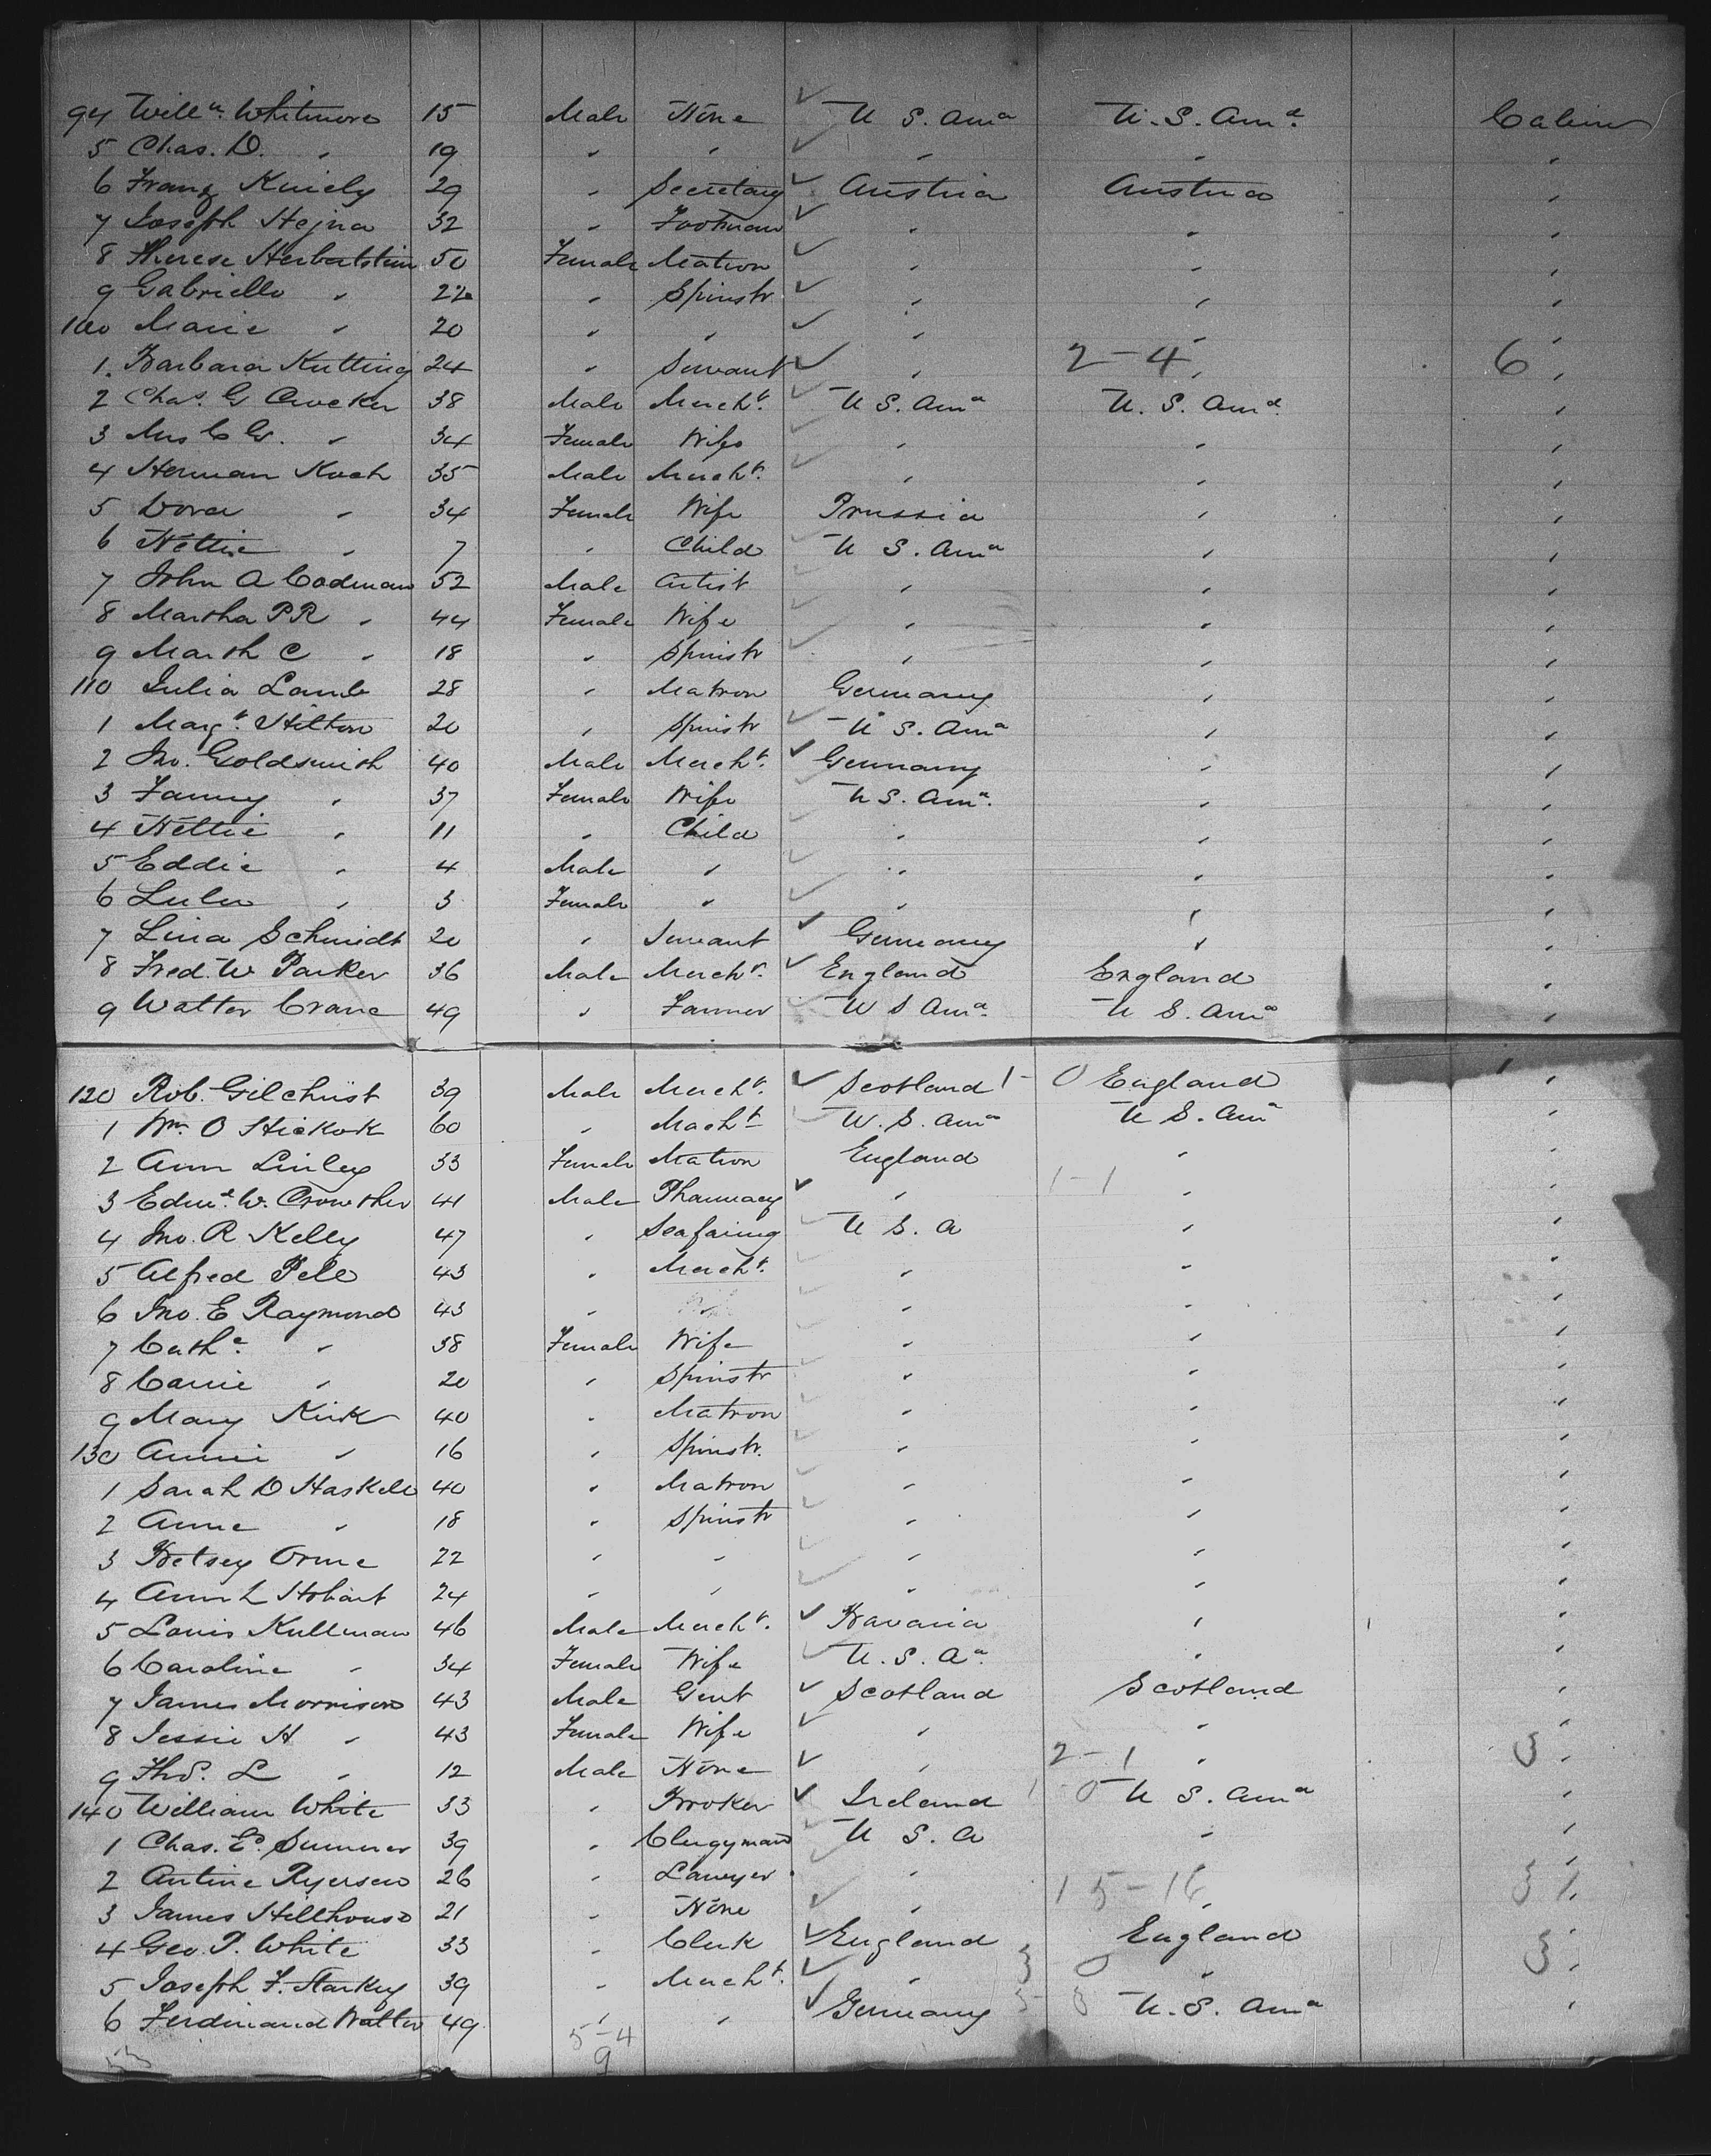 94 Willm. Whitmore 15 Male None U S. Ama U. S. Ama. Cabin
5 Chas. D. " 19 " " " " "
6 Franz 29 " Secretary Austria Austria "
7 Joseph Hejna 32 " Footman " " "
8 Therese Herbertstein 50 Female Matron " " "
9 Gabrielle " 22 " Spinstr " " "
100 Marie " 20 " " " " "
1. Barbara Kutting 24 " Servant " 2-4 " 6 "
2 Chas. G Crocker 38 Male Mercht. U S. Ama U. S. Ama "
3 Mrs C G. " 34 Female Wife " " "
4 Herman Koch 35 Male Mercht. " " "
5 Dora " 34 Female Wife Prussia " "
6 Nettie " 7 " Child U S. Ama " "
7 John A Codman 52 Male Artist " " "
8 Martha P R " 44 Female Wife " " "
9 Marth C " 18 " Spinstr " " "
110 Julia Lamb 28 " Matron Germany " "
1 Margt. Hilton 20 " Spinstr U S. Ama " "
2 Jno. Goldsmith 40 Male Mercht. Germany " "
3 Fanny " 37 Female Wife U S. Ama. " "
4 Nettie " 11 " Child " " "
5 Eddie " 4 Male " " " "
6 Lulu " 3 Female " " " "
7 Lina Schmidt 20 " Servant Germany " "
8 Fred. W Parker 36 Male Mercht. England England "
9 Walter Crane 49 " Farmer U S Ama. U S. Ama "
120 Rob. Gilchrist 39 Male Mercht. Scotland 1- 0 England 1 "
1 Wm. O Hickok 60 " Macht U. S. Ama U S. Ama "
2 Ann Linley 33 Female Matron England " "
3 Edmd. W. Crowther 41 Male Pharmacy " 1-1 " "
4 Jno. R Kelly 47 " Seafaring U S. A " "
5 Alfred Pell 43 " Mercht. " " "
6 Jno. E Raymond 43 " " " " "
7 Cathe. " 38 Female Wife " " "
8 Carrie " 20 " Spinstr " " "
9 Mary Kirk 40 " Matron " " "
130 Annie " 16 " Spinstr. " " "
1 Sarah D Haskell 40 " Matron " " "
2 Anne " 18 " Spinstr " " "
3 Betsey Orme 22 " " " " "
4 Ann L Hobart 24 " " " " "
5 Louis Kullman 46 Male Mercht. Bavaria " "
6 Caroline " 34 Female Wife U. S. Aa. " "
7 James Morrison 43 Male Gent Scotland Scotland "
8 Jessie H " 43 Female Wife " " "
9 Thos. L " 12 Male None " 2-1 " 3 "
140 William White 33 " Broker Ireland 1 0 U S. Ama "
1 Chas. E. Sumner 39 " Clergyman U S. A " "
2 Antine Ryerson 26 " Lawyer " 15-16 " "
3 James Hillhouse 21 " None " " "
4 Geo. P. White 33 " Clerk England England "
5 Joseph F. Starkey 39 " Mercht. " 3 0 " 3 "
6 Ferdinand Walter 49 " " Germany U. S. Ama "
5-4
9
53